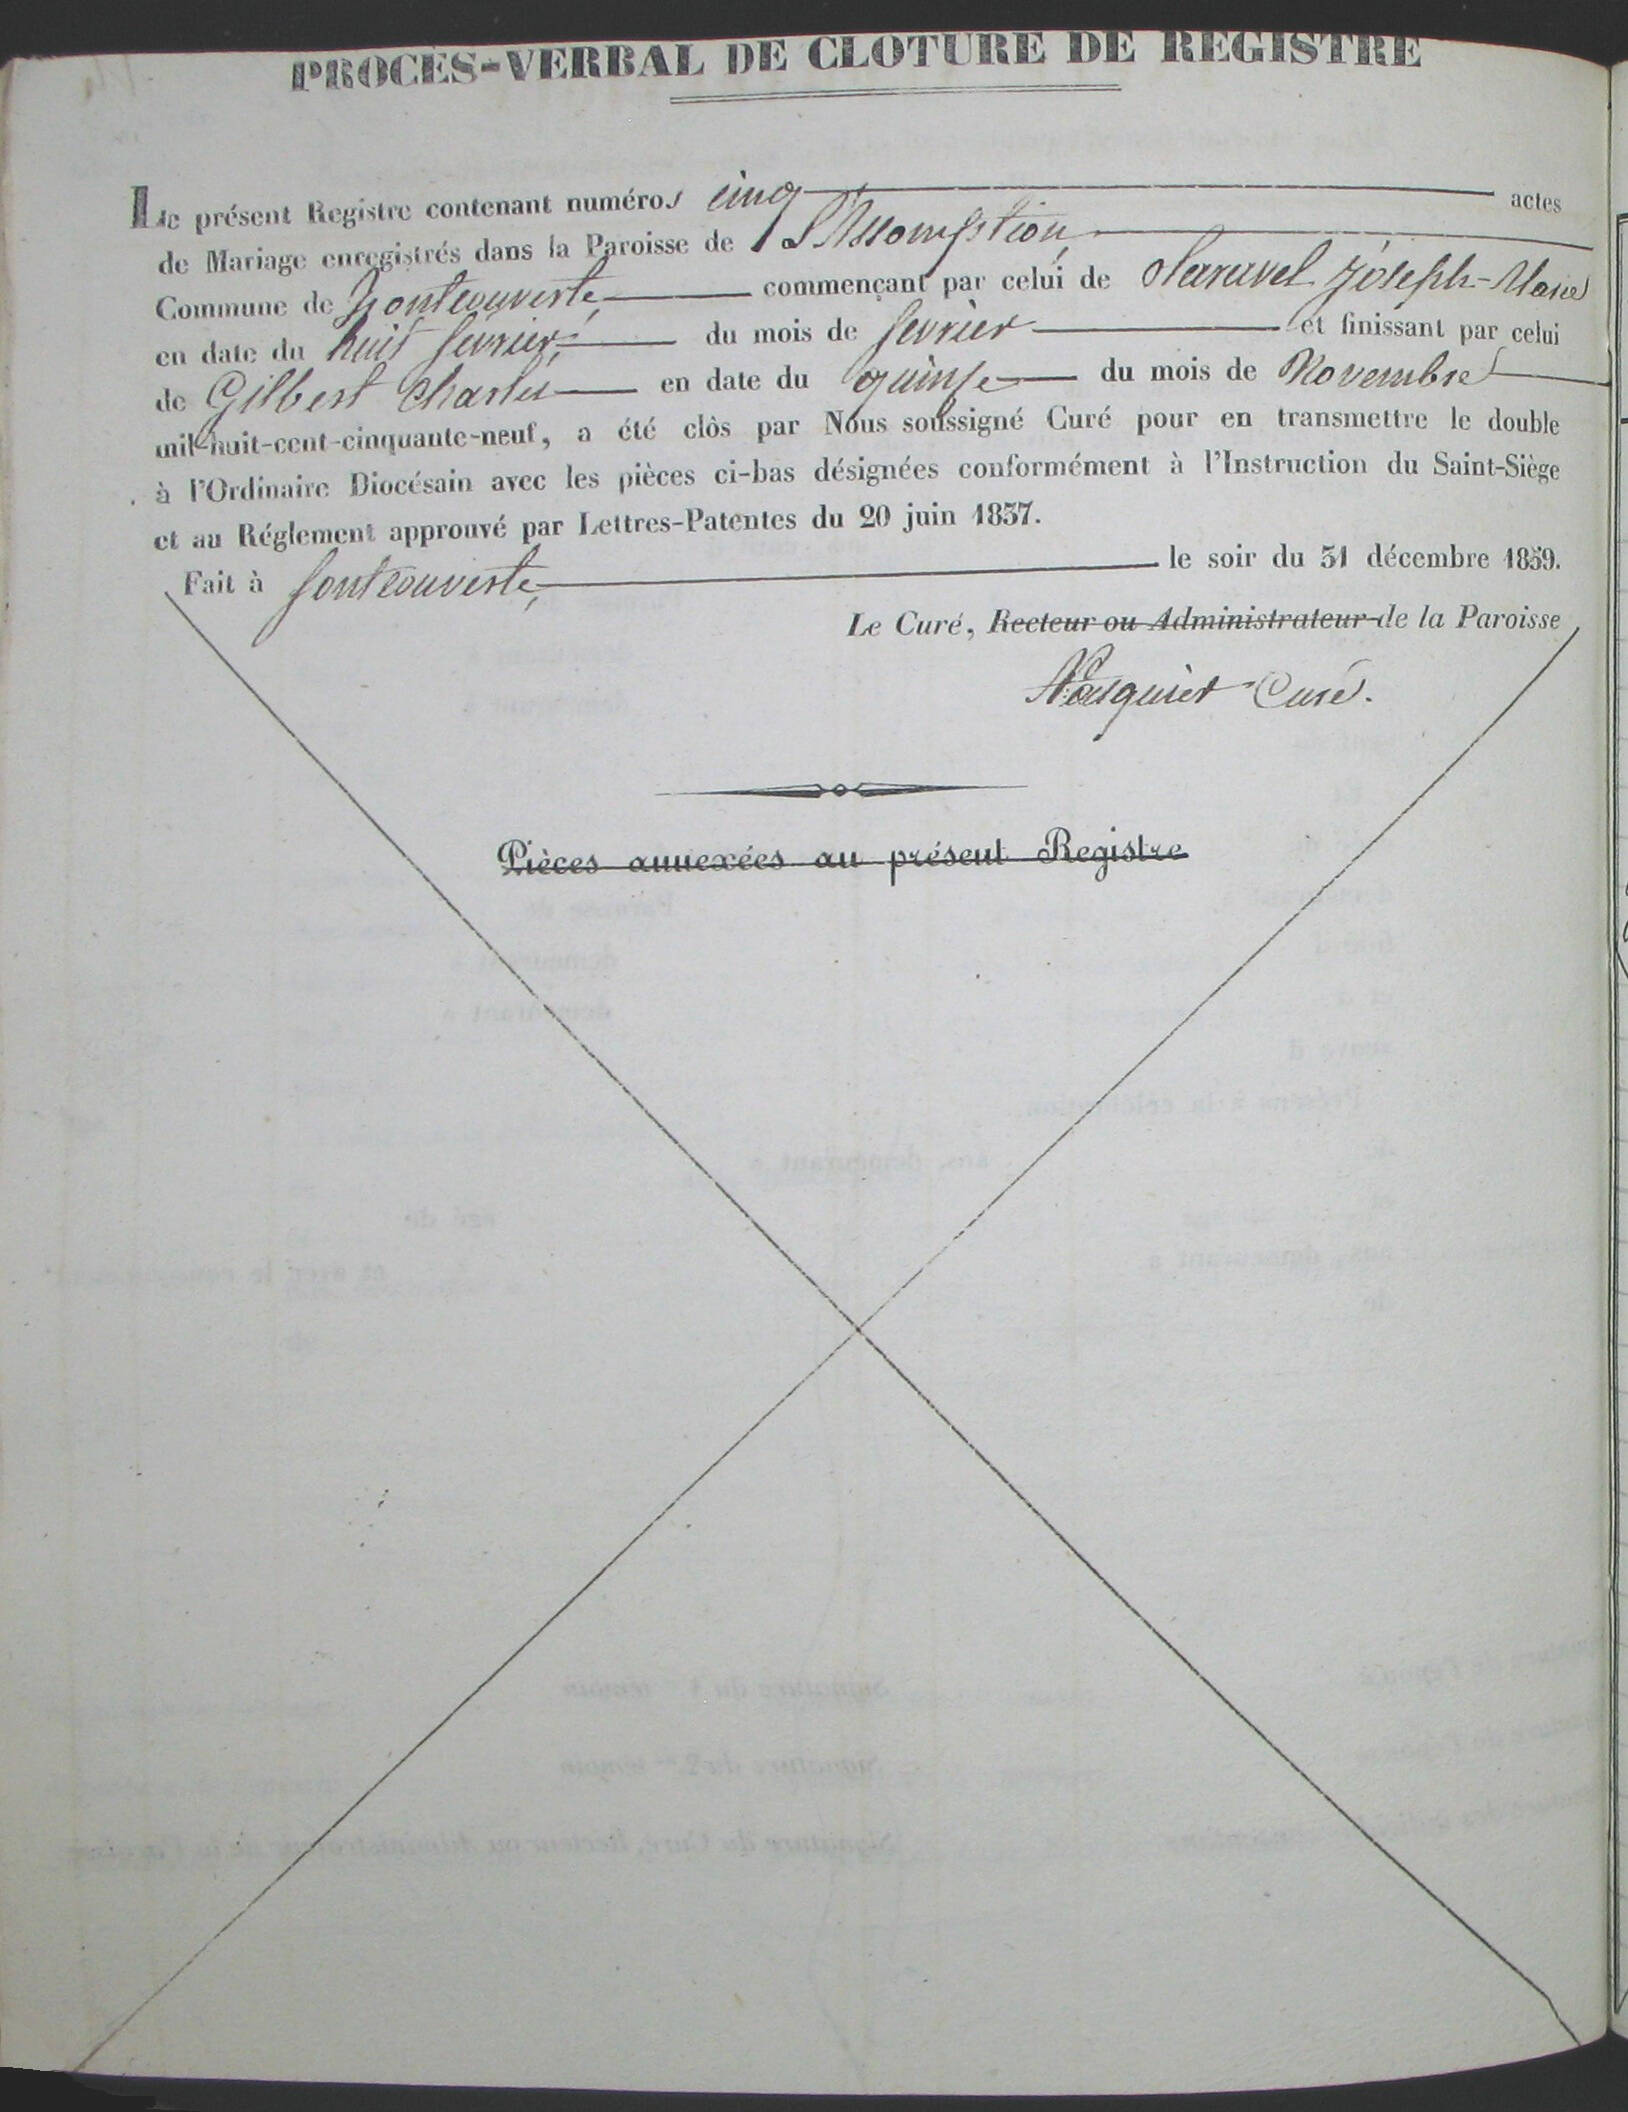 PROCES-VERBAL DE CLOTURE DE REGISTRE
Le présent Registre contenant numéros cinq actes
de Mariage enregistrés dans la Paroisse de L'Assomption
Commune de Fontcouverte commençant par celui de Joseph-Marie
en date du huit février du mois de février et finissant par celui
de Gilbert Charles en date du quinze du mois de Novembre
mil-huit-cent-cinquante-neuf, a été clôs par Nous soussigné Curé pour en transmettre le double
à l'Ordinaire Diocésain avec les pièces ci-bas désignées conformément à l'Instruction du Saint-Siège
et au Réglement approuvé par Lettres-Patentes du 20 juin 1837.
Fait à fontcouverte, le soir du 31 décembre 1859.
Le Curé, Recteur ou Administrateur de la Paroisse
Curé.
Pièces annexées au présent Registre